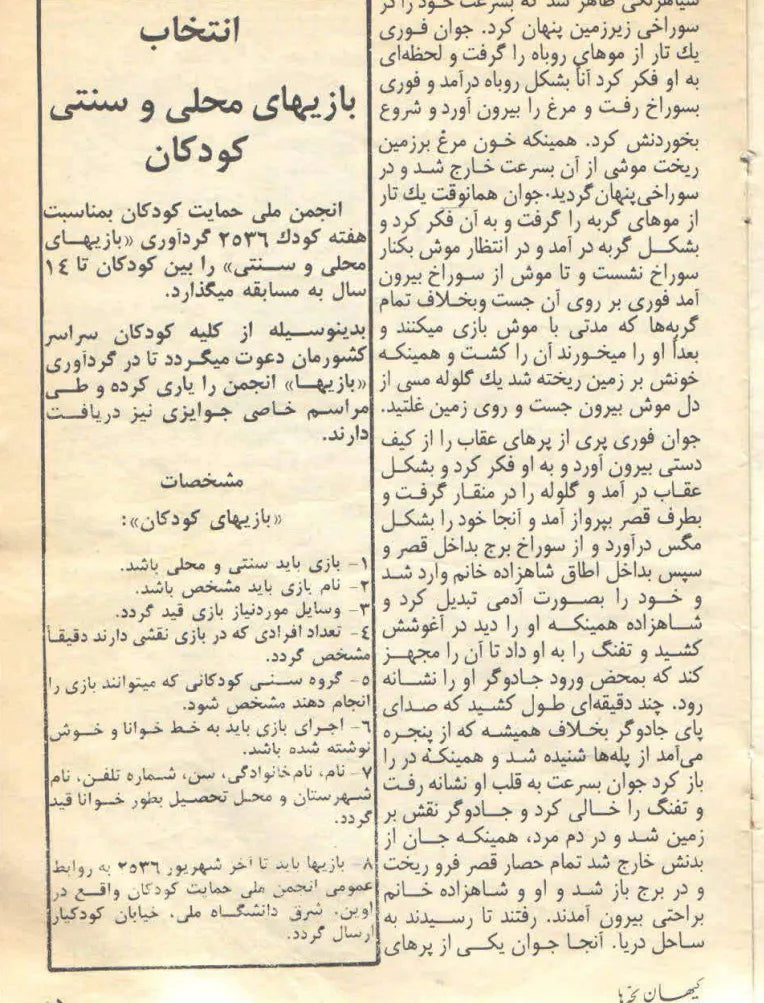 سوراخی زیرزمین پنهان کرد. جوان فوری
یك تار از موهای روباه را گرفت و لحظه‌ای
به او فکر کرد آناً بشکل روباه درآمد و فوری
بسوراخ رفت و مرغ را بیرون آورد و شروع
بخوردنش کرد. همینکه خون مرغ برزمین
ریخت موشی از آن بسرعت خارج شد و در
سوراخی پنهان گردید. جوان همانوقت یك تار
از موهای گربه را گرفت و به آن فکر کرد و
بشکل گربه در آمد و در انتظار موش بکنار
سوراخ نشست و تا موش از سوراخ بیرون
آمد فوری بر روی آن جست وبخلاف تمام
گربه‌ها که مدتی با موش بازی میکنند و
بعداً او را میخورند آن را کشت و همینکه
خونش بر زمین ریخته شد یك گلوله مسی از
دل موش بیرون جست و روی زمین غلتید.
جوان فوری پری از پرهای عقاب را از کیف
دستی بیرون آورد و به او فکر کرد و بشکل
عقاب در آمد و گلوله را در منقار گرفت و
بطرف قصر بپرواز آمد و آنجا خود را بشکل
مگس درآورد و از سوراخ برج بداخل قصر و
سپس بداخل اطاق شاهزاده خانم وارد شد
و خود را بصورت آدمی تبدیل کرد و
شاهزاده همینکه او را دید در آغوشش
کشید و تفنگ را به او داد تا آن را مجهز
کند که بمحض ورود جادوگر او را نشانه
رود. چند دقیقه‌ای طول کشید که صدای
پای جادوگر بخلاف همیشه که از پنجره
می‌آمد از پله‌ها شنیده شد و همینکه در را
باز کرد جوان بسرعت به قلب او نشانه رفت
و تفنگ را خالی کرد و جادوگر نقش بر
زمین شد و در دم مرد، همینکه جان از
بدنش خارج شد تمام حصار قصر فرو ریخت
و در برج باز شد و او و شاهزاده خانم
براحتی بیرون آمدند. رفتند تا رسیدند به
ساحل دریا. آنجا جوان یکی از پرهای
انتخاب
بازیهای محلی و سنتی
کودکان
انجمن ملی حمایت کودکان بمناسبت
هفته کودك ۲۵۳۶ گردآوری «بازیهای
محلی و سنتی» را بین کودکان تا ۱۴
سال به مسابقه میگذارد.
بدینوسیله از کلیه کودکان سراسر
کشورمان دعوت میگردد تا در گردآوری
«بازیها» انجمن را یاری کرده و طی
مراسم خاصی جوایزی نیز دریافت
دارند.
مشخصات
«بازیهای کودکان»:
۱- بازی باید سنتی و محلی باشد.
۲- نام بازی باید مشخص باشد.
۳- وسایل موردنیاز بازی قید گردد.
۴- تعداد افرادی که در بازی نقشی دارند دقیقاً
مشخص گردد.
۵- گروه سنی کودکانی که میتوانند بازی را
انجام دهند مشخص شود.
۶- اجرای بازی باید به خط خوانا و خوش
نوشته شده باشد.
۷- نام، نام‌خانوادگی، سن، شماره تلفن، نام
شهرستان و محل تحصیل بطور خوانا قید
گردد.
۸- بازیها باید تا آخر شهریور ۲۵۳۶ به روابط
عمومی انجمن ملی حمایت کودکان واقع در
اوین، شرق دانشگاه ملی، خیابان کودکیار
ارسال گردد.
کیهان بچه‌ها